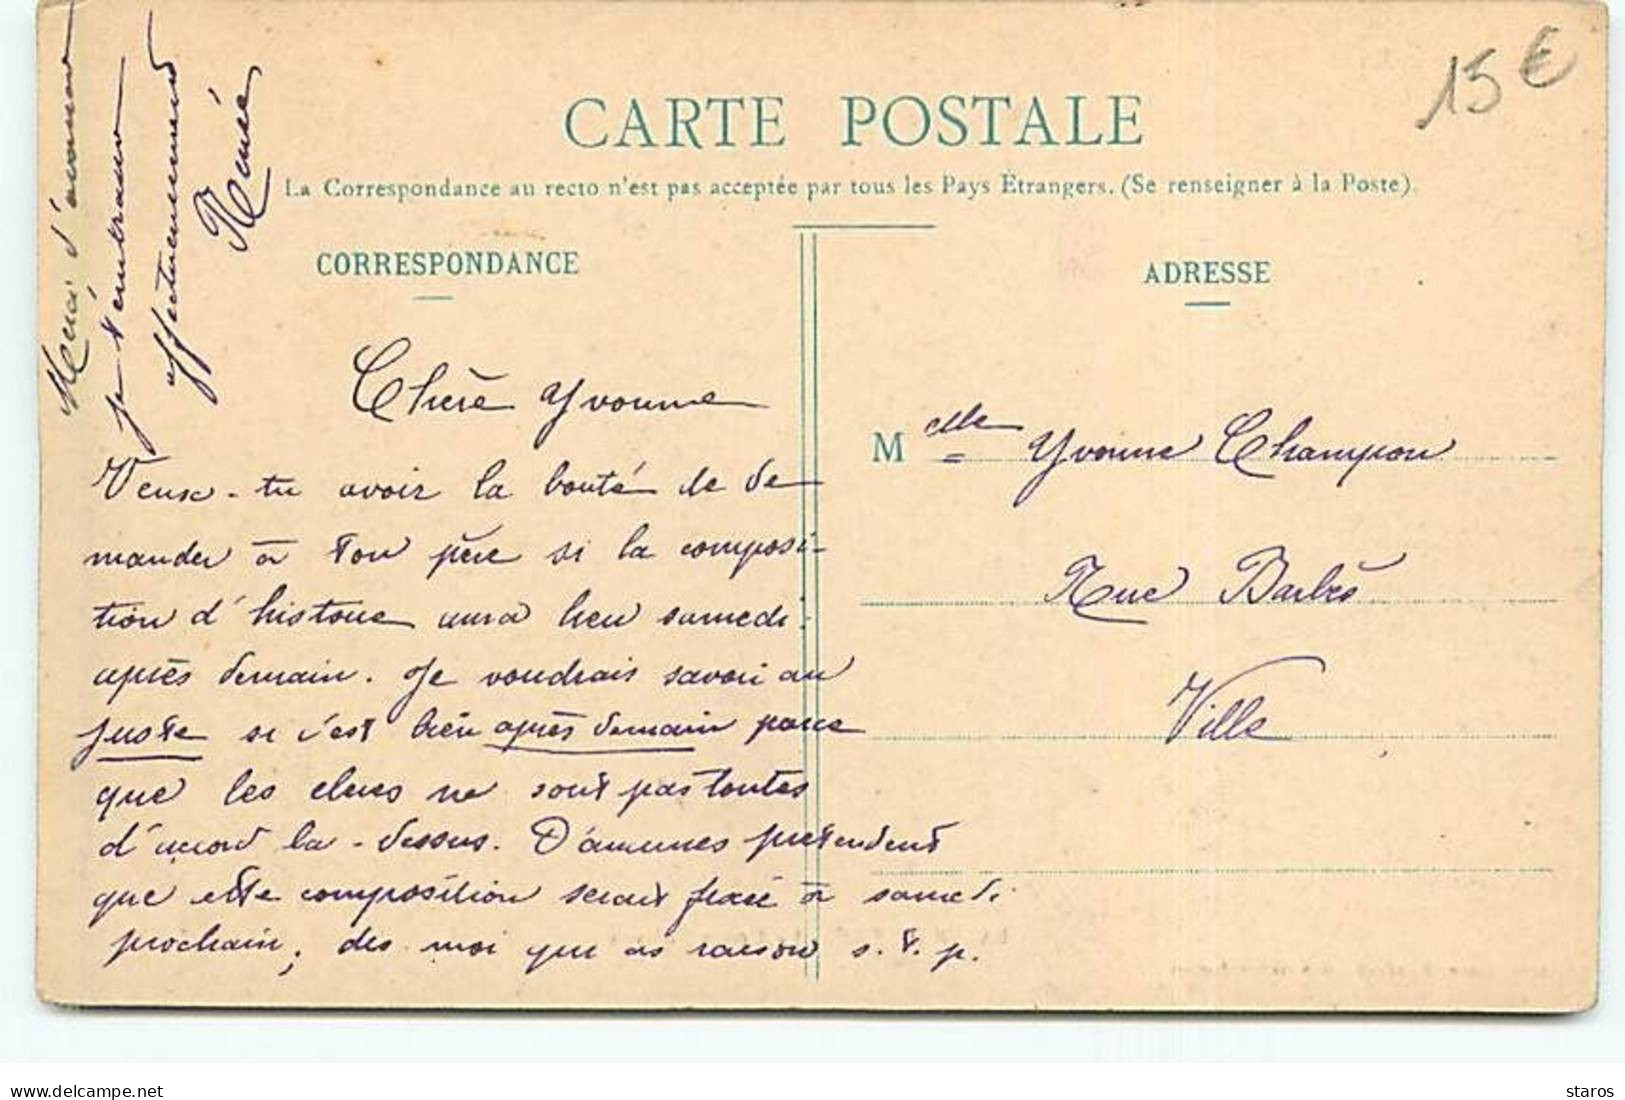 CARTE POSTALE
15 €
La Correspondance au recto n'est pas acceptée par tous les Pays Étrangers. (Se renseigner à la Poste).
CORRESPONDANCE
Chère Yvonne
Veux-tu avoir la bonté de de
mander à ton père si la composi-
tion d'histoire aura lieu samedi.
après demain. Je voudrais savoir au
juste si c'est bien après demain parce
que les élèves ne sont pas toutes
d'accord là-dessus. D'aucunes prétendent
que cette composition serait fixée à samedi
prochain, dis moi qui as raison s.t.p.
Merci d'avance
je t'embrasse
affectueusement
Renée
ADRESSE
Melle Yvonne Champion
Rue Barbès
Ville
delcampe.net
staros